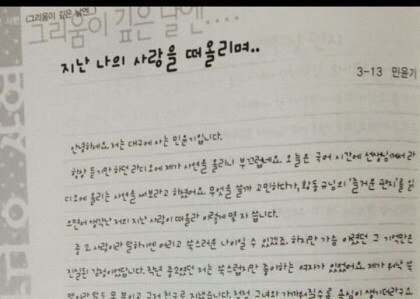 (그리움이 깊은 날엔...)
그리움이 깊은 날엔....
지난 나의 사랑을 떠올리며..
3-13 민윤기
안녕하세요. 저는 대구에 사는 민윤기입니다.
항상 듣기만 하던 라디오에 제가 사연을 올리니 부끄럽네요. 오늘은 국어 시간에 선생님께서 라
디오에 올리는 사연을 써보라고 하셨어요. 무엇을 쓸까 고민하다가, 황동규님의 '즐거운 편지'를 읽
으면서 생각난 저의 지난 사랑이 떠올라 이렇게 몇 자 씁니다.
중2 사랑이라 말하기엔 어리고 쑥스러운 나이일 수 있겠죠. 하지만 가슴 아렸던 그 기억만은
진실된 감정이었답니다. 작년 중2였던 저는 쑥스럽지만 좋아하는 여자가 있었어요. 제가 워낙 쑥